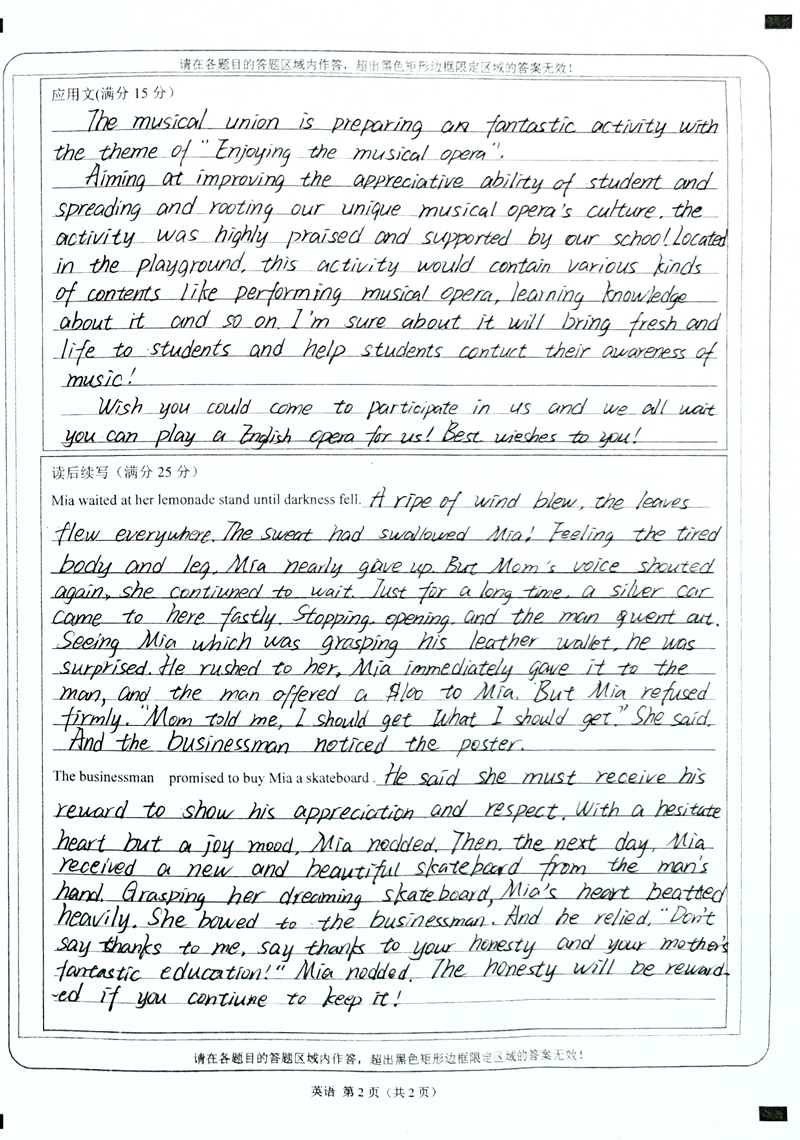 请在各题目的答题区域内作答，超出黑色矩形边框限定区域的答案无效！
应用文(满分 15 分)
The musical union is preparing an fantastic activity with
the theme of "Enjoying the musical opera".
Aiming at improving the appreciative ability of student and
spreading and rooting our unique musical opera's culture, the
activity was highly praised and supported by our school. Located
in the playground, this activity would contain various kinds
of contents like performing musical opera, learning knowledge
about it and so on. I'm sure about it will bring fresh and
life to students and help students contuct their awareness of
music!
Wish you could come to participate in us and we all wait
you can play a English opera for us! Best wieshes to you!
读后续写（满分 25 分）
Mia waited at her lemonade stand until darkness fell. A ripe of wind blew, the leaves
flew everywhere. The sweat had swallowed Mia! Feeling the tired
body and leg, Mia nearly gave up. But Mom's voice shouted
again, she contiuned to wait. Just for a long time, a silver car
came to here fastly. Stopping, opening, and the man went out.
Seeing Mia which was grasping his leather wallet, he was
surprised. He rushed to her, Mia immediately gave it to the
man, and the man offered a $100 to Mia. But Mia refused
firmly. "Mom told me, I should get What I should get." She said.
And the businessman noticed the poster.
The businessman promised to buy Mia a skateboard. He said she must receive his
reward to show his appreciation and respect. With a hesitate
heart but a joy mood, Mia nodded. Then, the next day, Mia
received a new and beautiful skateboard from the man's
hand. Grasping her dreaming skateboard, Mia's heart beatted
heavily. She bowed to the businessman. And he relied, "Don't
say thanks to me, say thanks to your honesty and your mother's
fantastic education!" Mia nodded. The honesty will be reward-
-ed if you contiune to keep it!
请在各题目的答题区域内作答，超出黑色矩形边框限定区域的答案无效！
英语 第 2 页（共 2 页）